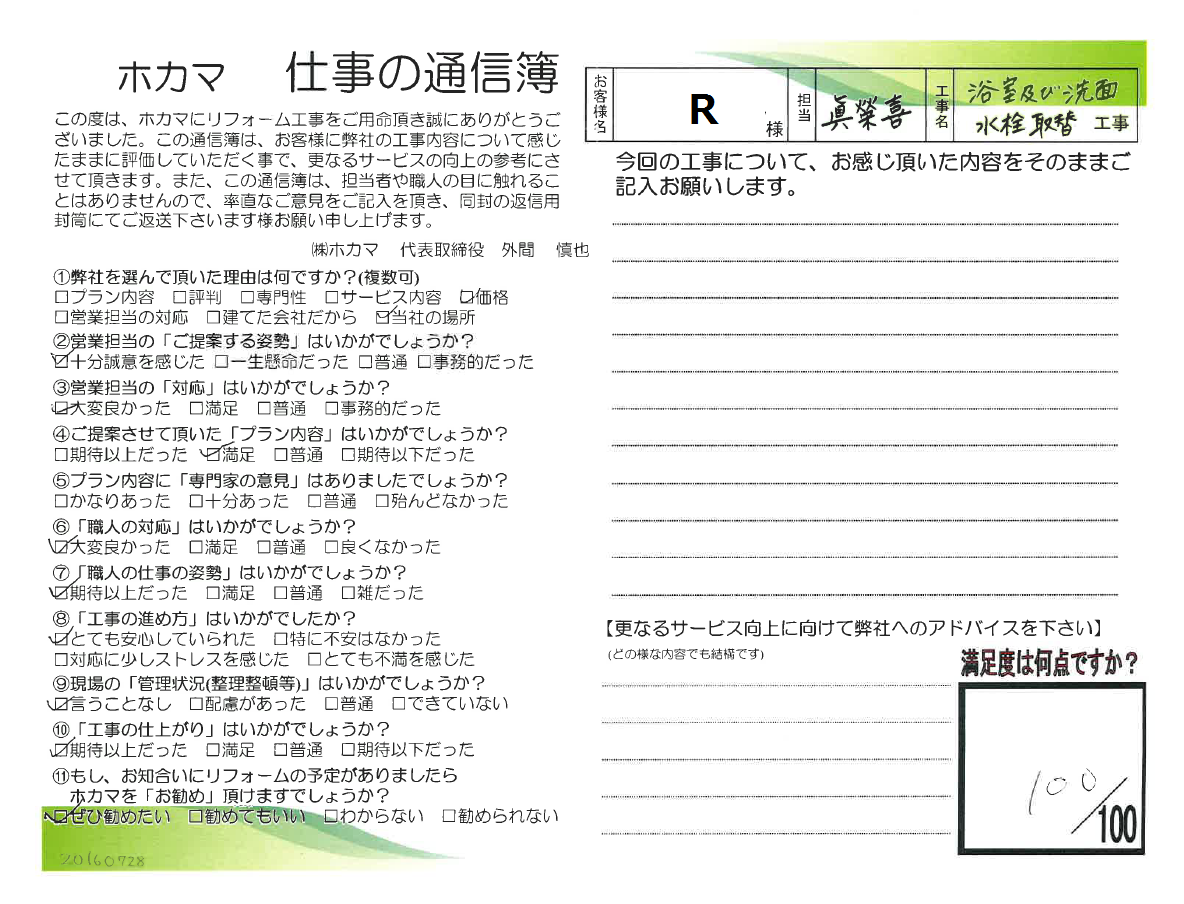 ホカマ 仕事の通信簿
この度は、ホカマにリフォーム工事をご用命頂き誠にありがとうご
ざいました。この通信簿は、お客様に弊社の工事内容について感じ
たままに評価していただく事で、更なるサービスの向上の参考にさ
せて頂きます。また、この通信簿は、担当者や職人の目に触れるこ
とはありませんので、率直なご意見をご記入を頂き、同封の返信用
封筒にてご返送下さいます様お願い申し上げます。
㈱ホカマ 代表取締役 外間 慎也
①弊社を選んで頂いた理由は何ですか？(複数可)
□プラン内容 □評判 □専門性 □サービス内容 ☑価格
□営業担当の対応 □建てた会社だから ☑当社の場所
②営業担当の「ご提案する姿勢」はいかがでしょうか？
☑十分誠意を感じた □一生懸命だった □普通 □事務的だった
③営業担当の「対応」はいかがでしょうか？
☑大変良かった □満足 □普通 □事務的だった
④ご提案させて頂いた「プラン内容」はいかがでしょうか？
□期待以上だった ☑満足 □普通 □期待以下だった
⑤プラン内容に「専門家の意見」はありましたでしょうか？
□かなりあった □十分あった □普通 □殆んどなかった
⑥「職人の対応」はいかがでしょうか？
☑大変良かった □満足 □普通 □良くなかった
⑦「職人の仕事の姿勢」はいかがでしょうか？
☑期待以上だった □満足 □普通 □雑だった
⑧「工事の進め方」はいかがでしたか？
☑とても安心していられた □特に不安はなかった
□対応に少しストレスを感じた □とても不満を感じた
⑨現場の「管理状況(整理整頓等)」はいかがでしょうか？
☑言うことなし □配慮があった □普通 □できていない
⑩「工事の仕上がり」はいかがでしょうか？
☑期待以上だった □満足 □普通 □期待以下だった
⑪もし、お知合いにリフォームの予定がありましたら
ホカマを「お勧め」頂けますでしょうか？
☑ぜひ勧めたい □勧めてもいい □わからない □勧められない
20160728
お客様名 R 様 担当 眞榮喜 工事名 浴室及び洗面
水栓取替 工事
今回の工事について、お感じ頂いた内容をそのままご
記入お願いします。
【更なるサービス向上に向けて弊社へのアドバイスを下さい】
(どの様な内容でも結構です)
満足度は何点ですか？
100/100